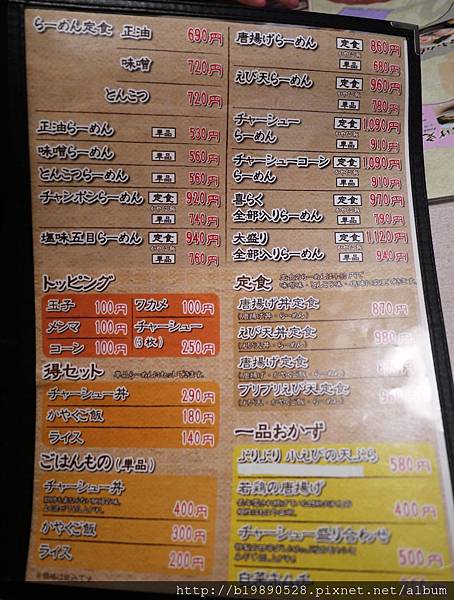 らーめん定食 正油 690円
味噌 720円
とんこつ 720円
正油らーめん 単品 530円
味噌らーめん 単品 560円
とんこつらーめん 単品 560円
チャンポンらーめん 定食 920円
単品 740円
塩味五目らーめん 定食 940円
単品 760円
トッピング
玉子 100円 ワカメ 100円
メンマ 100円 チャーシュー
コーン 100円 (3枚) 250円
得セット
チャーシュー丼 290円
かやくご飯 180円
ライス 140円
ごはんもの(単品)
チャーシュー丼
400円
かやくご飯 300円
ライス 200円
唐揚げらーめん 定食 860円
単品 680円
えび天らーめん 定食 960円
単品 780円
チャーシュー 定食 1,090円
らーめん 単品 910円
チャーシューコーン 定食 1,090円
らーめん 単品 910円
喜らく 定食 970円
全部入りらーめん 単品 790円
大盛り 定食 1,120円
全部入りらーめん 単品 940円
定食
唐揚げ丼定食 870円
(唐揚げ丼・らーめん)
えび天丼定食 980円
(えび天丼・らーめん)
唐揚げ定食 880円
プリプリえび天定食 960円
一品おかず
ぷりぷり 小えびの天ぷら 580円
若鶏の唐揚げ
400円
チャーシュー盛り合わせ
500円
http://b19890528.pixnet.net/album